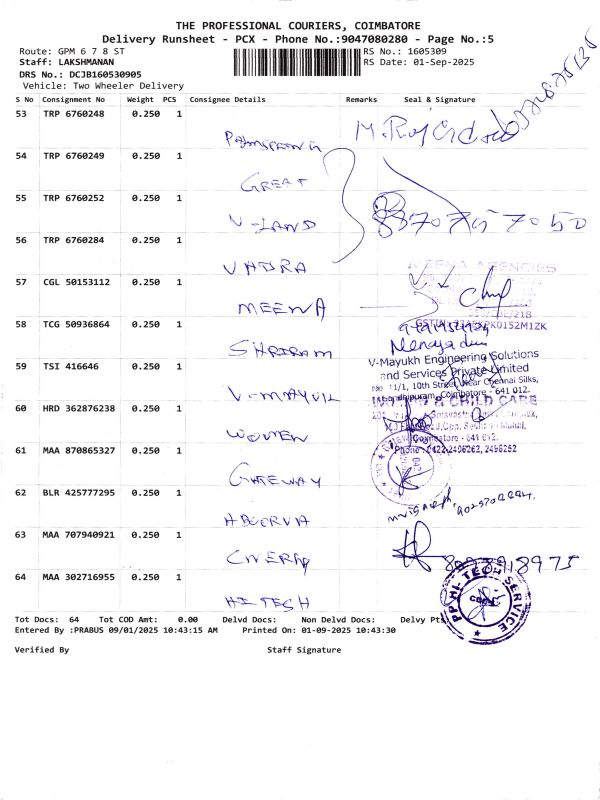 THE PROFESSIONAL COURIERS, COIMBATORE
Delivery Runsheet - PCX - Phone No.:9047080280 - Page No.:5
Route: GPM 6 7 8 ST
RS No.: 1605309
Staff: LAKSHMANAN
RS Date: 01-Sep-2025
DRS No.: DCJB160530905
Vehicle: Two Wheeler Delivery
S No Consignment No Weight PCS Consignee Details Remarks Seal & Signature
53 TRP 6760248 0.250 1
54 TRP 6760249 0.250 1
GREAT
55 TRP 6760252 0.250 1
V-LAND
56 TRP 6760284 0.250 1
VADRA
57 CGL 50153112 0.250 1
MEENA
58 TCG 50936864 0.250 1
SHRIRAM
59 TSI 416646 0.250 1
V-MAYUK
V-Mayukh Engineering Solutions
and Services Private Limited
11/1, 10th Street, Near Chennai Silks,
Coimbatore - 641 012.
60 HRD 362876238 0.250 1
WOMEN
& CHILD CARE
Coimbatore - 641 012.
Phone : 0422-2406262, 2496262
61 MAA 870865327 0.250 1
GATEWAY
62 BLR 425777295 0.250 1
APOORVA
63 MAA 707940921 0.250 1
64 MAA 302716955 0.250 1
HITECH
PP HI-TECH SERVICE
Tot Docs: 64 Tot COD Amt: 0.00 Delvd Docs: Non Delvd Docs: Delvy Pts
Entered By :PRABUS 09/01/2025 10:43:15 AM Printed On: 01-09-2025 10:43:30
Verified By Staff Signature